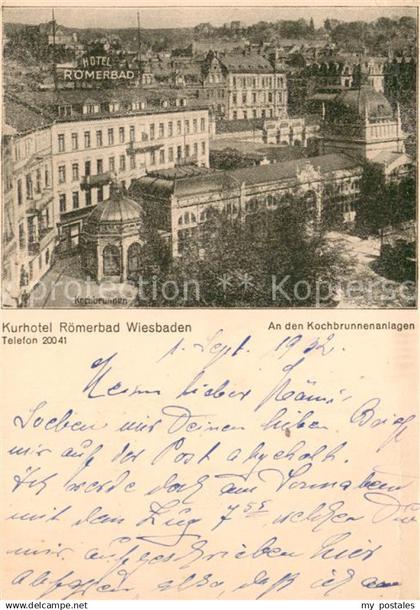 HOTEL
RÖMERBAD
Kochbrunnen
ansichtskarten-center.de
Kurhotel Römerbad Wiesbaden
An den Kochbrunnenanlagen
Telefon 20041
1. Sept. 1932.
Mein lieber
Soeben mir Deinen lieben Brief
mir auf der Post abgeholt.
Ich werde doch am Sonnabend
mit dem Zug 7 55 welchen Du
mir aufgeschrieben hier
abfahren, also daß ich am